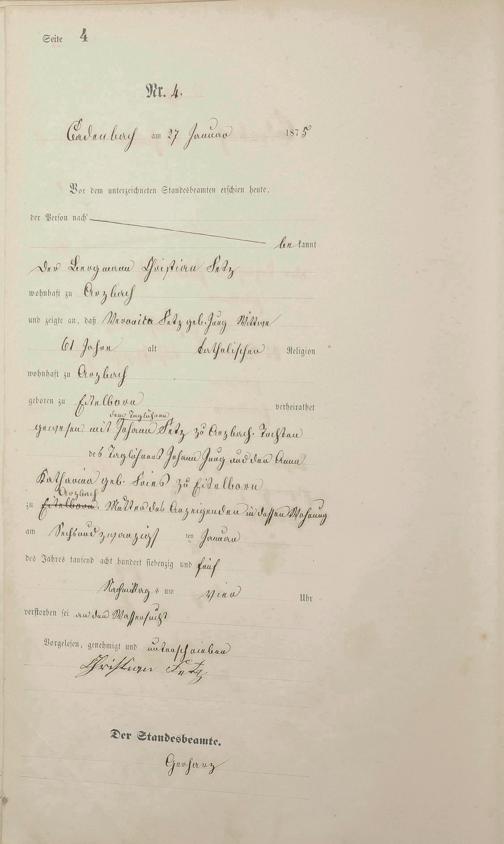 Seite 4
Nr. 4.
Cadenbach am 27 Januar 1875
Vor dem unterzeichneten Standesbeamten erschien heute,
der Person nach
bekannt
der Bergmann Christian Fetz
wohnhaft zu Arzbach
und zeigte an, daß Veronika Fetz geb. Jung Wittwe
61 Jahre alt katholischer Religion
wohnhaft zu Arzbach
geboren zu Eitelborn verheirathet
dem Taglöhner
gewesen mit Johann Fetz zu Arzbach. Tochter
des Taglöhners Johann Jung und der Anna
Katharina geb. zu Eitelborn
Arzbach
zu Eitelborn. Mutter des Anzeigenden in dessen Wohnung
am Sechsundzwanzigsten Januar
des Jahres tausend acht hundert siebenzig und fünf
Nachmittags um vier Uhr
verstorben sei an der Wassersucht
Vorgelesen, genehmigt und unterschrieben
Christian Fetz
Der Standesbeamte.
Gerharz